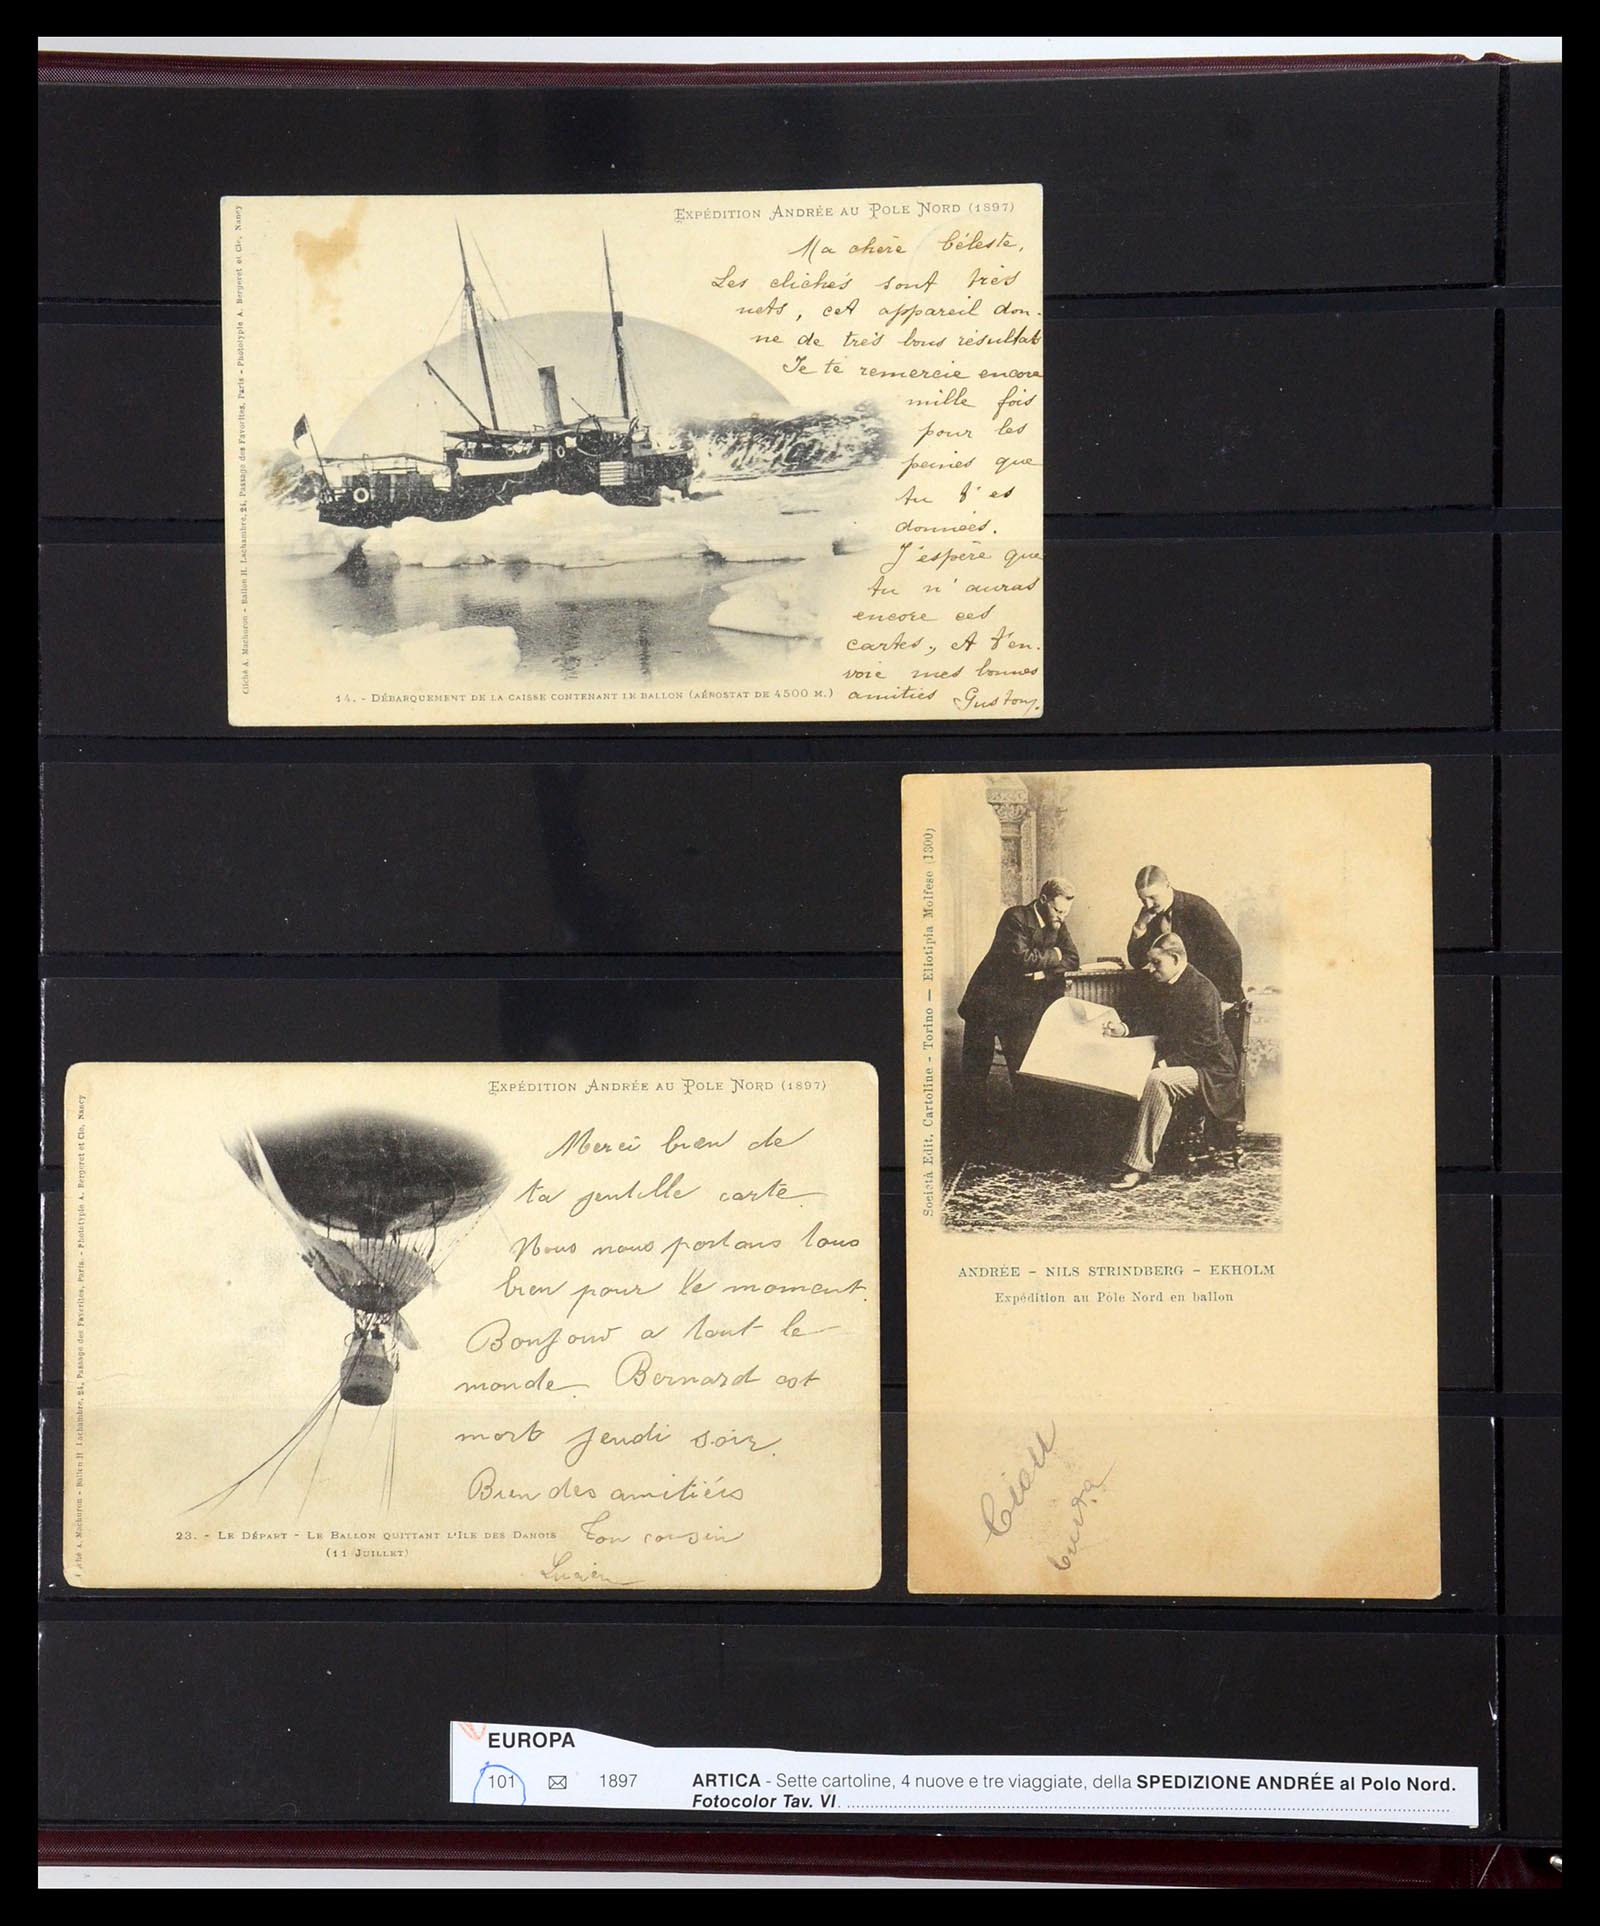 EXPÉDITION ANDRÉE AU POLE NORD (1897)
Ma chère Céleste,
Les clichés sont très
nets, cet appareil don-
ne de très bons résultats
Je te remercie encore
mille fois
pour les
peines que
tu t'es
données.
J'espère que
tu n'auras
encore ces
cartes, et t'en-
voie mes bonnes
amitiés Gustony.
14. - DÉBARQUEMENT DE LA CAISSE CONTENANT LE BALLON (AÉROSTAT DE 4500 M.)
Cliché A. Machuron - Ballon H. Lachambre, 24, Passage des Favorites, Paris - Phototypie A. Bergeret et Cie, Nancy
Società Edit. Cartoline - Torino — Eliotipia Molfese (1300)
ANDRÉE - NILS STRINDBERG - EKHOLM
Expédition au Pôle Nord en ballon
EXPÉDITION ANDRÉE AU POLE NORD (1897)
Merci bien de
ta gentille carte
Nous nous portons tous
bien pour le moment.
Bonjour a tout le
monde. Bernard est
mort jeudi soir.
Bien des amitiés
Ton cousin
Lucien
23. - LE DÉPART - LE BALLON QUITTANT L'ILE DES DANOIS
(11 JUILLET)
Cliché A. Machuron - Ballon H. Lachambre, 24, Passage des Favorites, Paris. - Phototypie A. Bergeret et Cie, Nancy
EUROPA
101 ✉ 1897 ARTICA - Sette cartoline, 4 nuove e tre viaggiate, della SPEDIZIONE ANDRÉE al Polo Nord.
Fotocolor Tav. VI